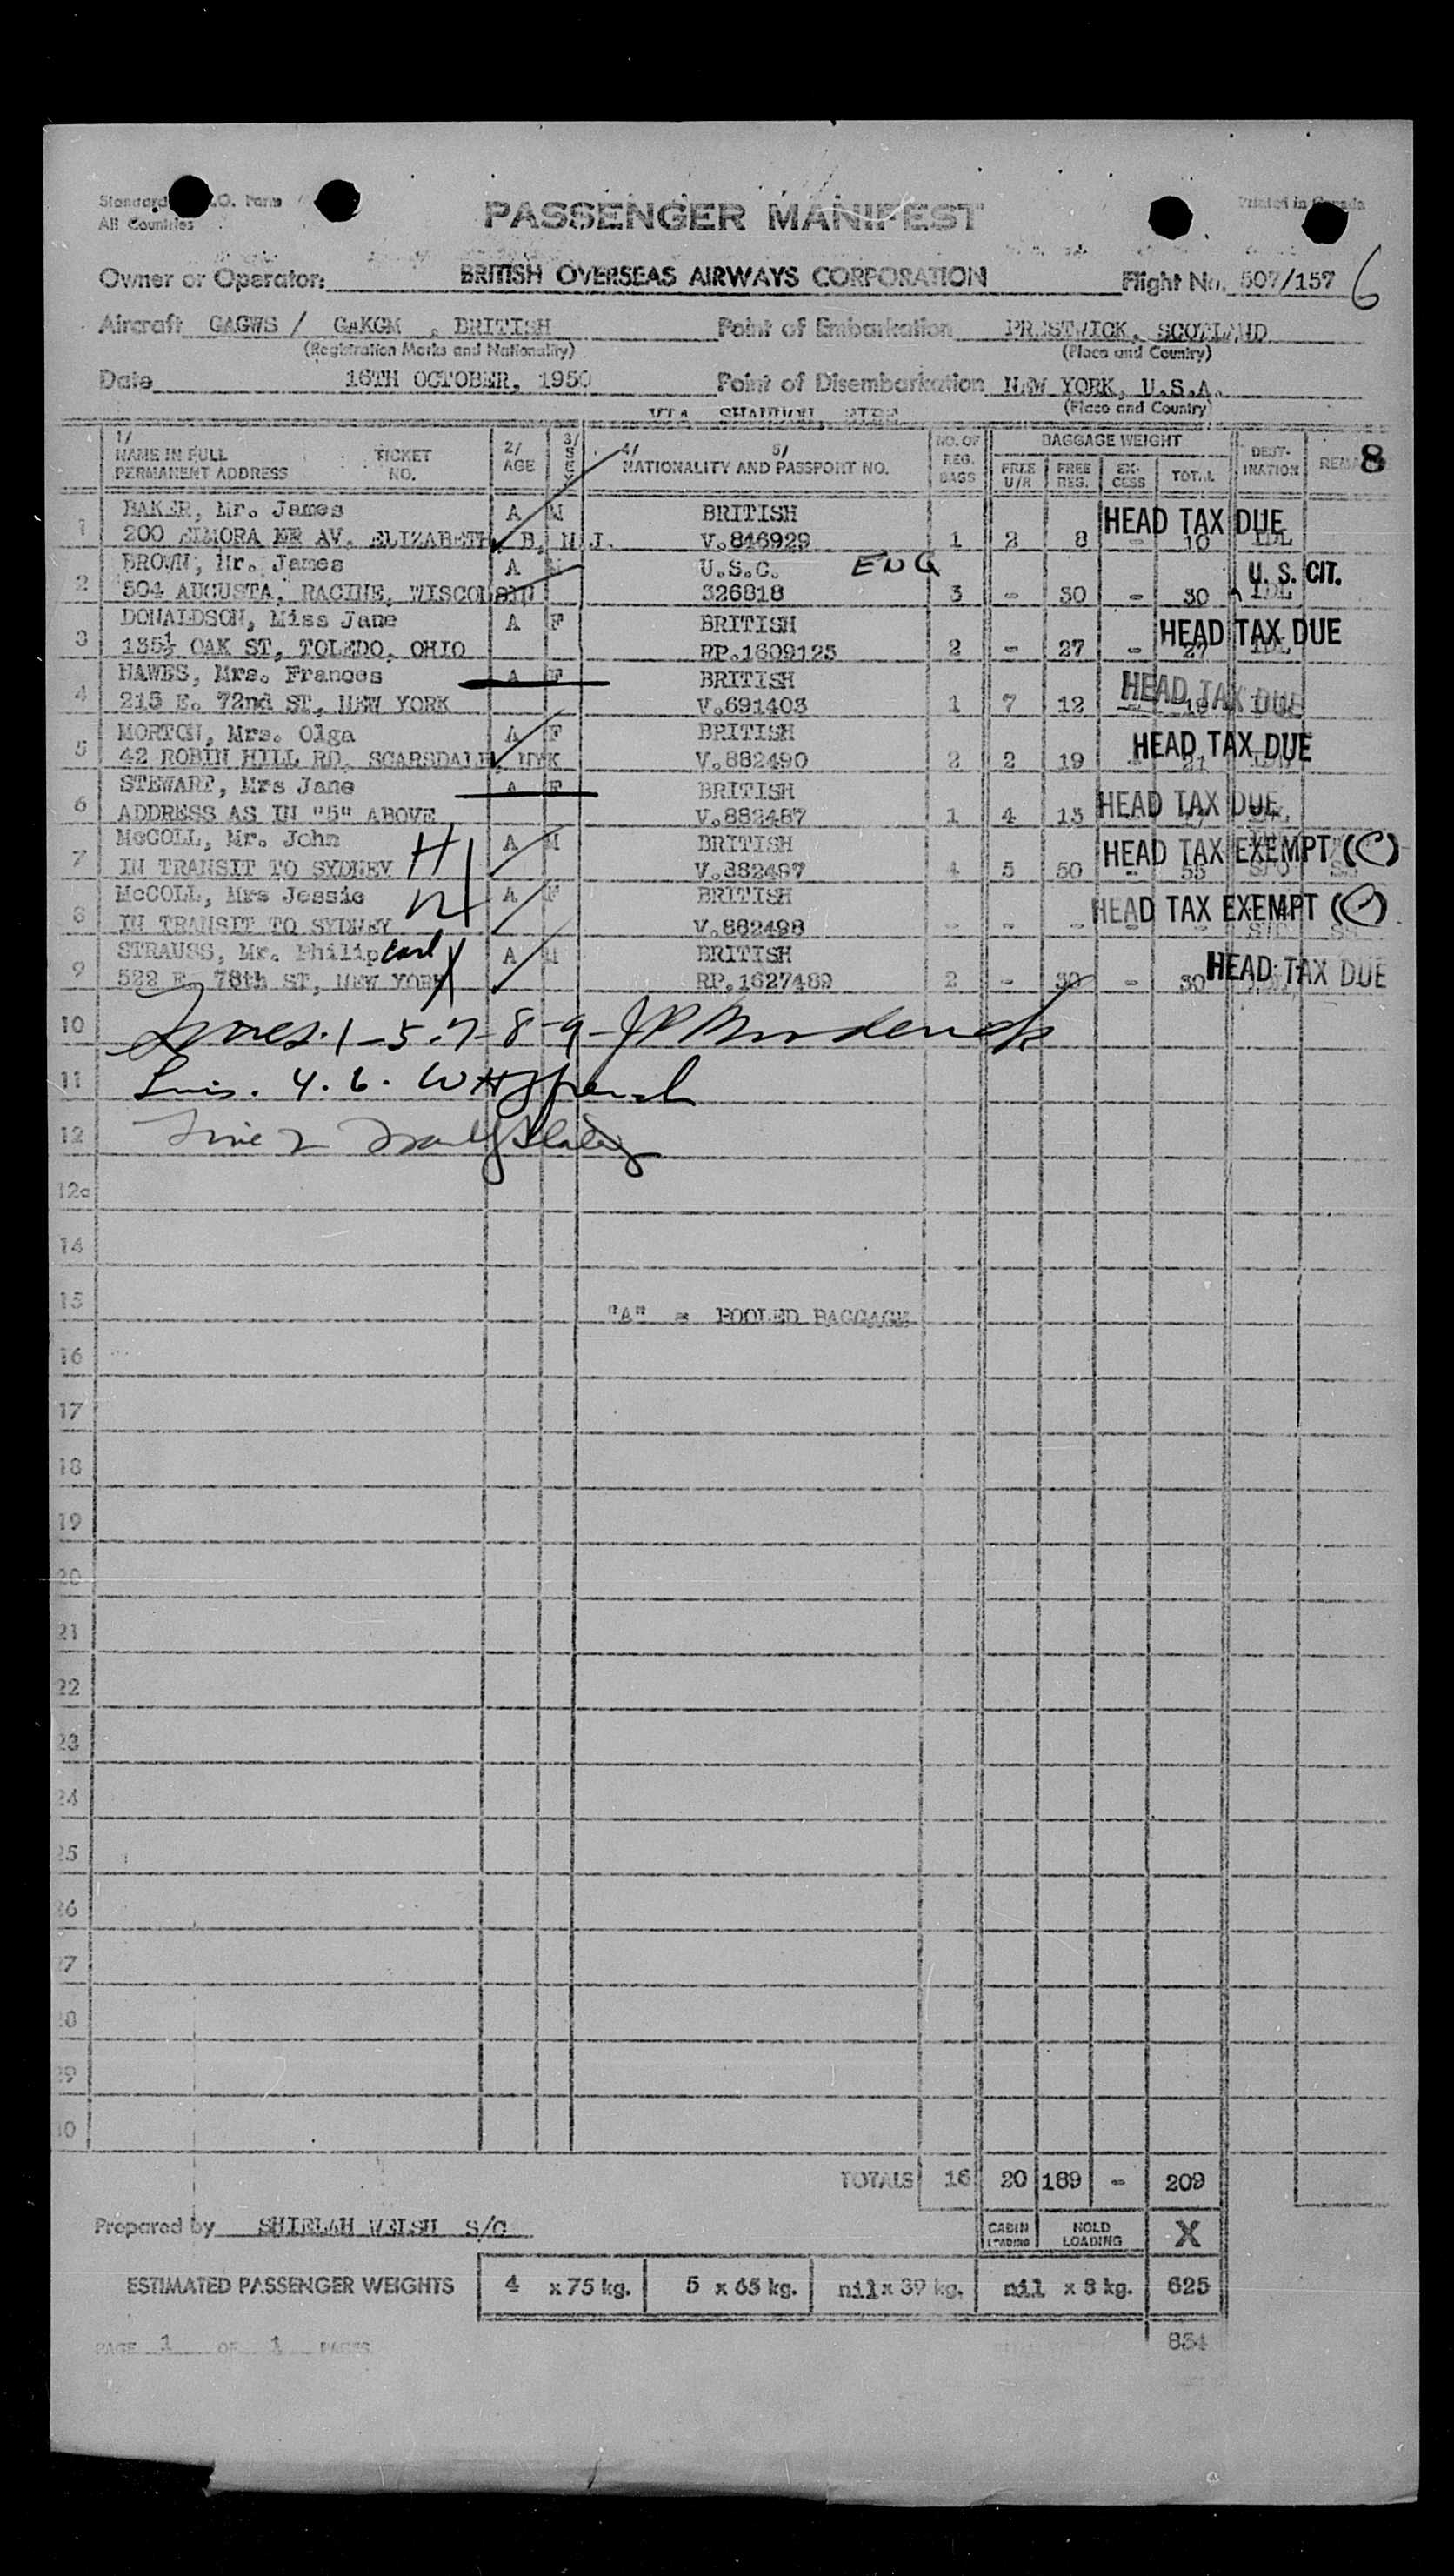 Standard I.C.A.O. Form
All Countries
Printed in Canada
PASSENGER MANIFEST
Owner or Operator: BRITISH OVERSEAS AIRWAYS CORPORATION Flight No. 507/157 6
Aircraft GAGWS / GAKGM , BRITISH Point of Embarkation PRESTWICK, SCOTLAND
(Registration Marks and Nationality) (Place and Country)
Date 16TH OCTOBER, 1950 Point of Disembarkation NEW YORK, U.S.A.
(Place and Country)
VIA SHANNON, EIRE
1/ NAME IN FULL PERMANENT ADDRESS TICKET NO. 2/ AGE 3/ SEX 4/ 5/ NATIONALITY AND PASSPORT NO. NO. OF REG. BAGS BAGGAGE WEIGHT FREE U/R FREE REG. EX-CESS TOTAL DEST-INATION 8
1 BAKER, Mr. James A M BRITISH HEAD TAX DUE
200 ELMORA AV. ELIZABETH, N.J. V.846929 1 2 8 - 10 IDL
2 BROWN, Mr. James A M U.S.C. ENG U. S. CIT.
504 AUGUSTA, RACINE, WISCONSIN 326818 3 - 30 - 30 IDL
3 DONALDSON, Miss Jane A F BRITISH HEAD TAX DUE
135½ OAK ST, TOLEDO, OHIO RP.1609125 2 - 27 - 27 IDL
4 HAWES, Mrs. Frances A F BRITISH HEAD TAX DUE
215 E. 72nd ST, NEW YORK V.691403 1 7 12 - 19
5 MORTON, Mrs. Olga A F BRITISH HEAD TAX DUE
42 ROBIN HILL RD, SCARSDALE, NYK V.882490 2 2 19 - 21
6 STEWART, Mrs Jane A F BRITISH HEAD TAX DUE
ADDRESS AS IN "5" ABOVE V.882487 1 4 13
7 McCOLL, Mr. John A M BRITISH HEAD TAX EXEMPT (C)
IN TRANSIT TO SYDNEY V.882497 4 5 50 - 55
8 McCOLL, Mrs Jessie A F BRITISH HEAD TAX EXEMPT (C)
IN TRANSIT TO SYDNEY V.882498 - - - - -
9 STRAUSS, Mr. Philip Carl A M BRITISH HEAD TAX DUE
522 E. 78th ST, NEW YORK RP.1627489 2 - 30 - 30
10 Lines 1-5-7-8-9-
11 Lines. 4. 6.
12 Line 2
12c
14
15 "A" = POOLED BAGGAGE
16
17
18
19
20
21
22
23
24
25
26
27
28
29
30
TOTALS 16 20 189 - 209
Prepared by SHIELAH WELSH S/O CABIN LOADING HOLD LOADING X
ESTIMATED PASSENGER WEIGHTS 4 x 75 kg. 5 x 65 kg. nil x 39 kg. nil x 8 kg. 625
PAGE 1 OF 1 PAGES 834